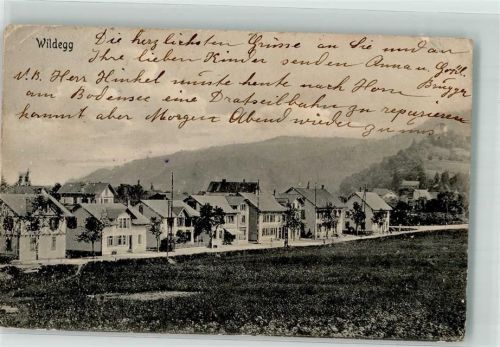 Wildegg
Die herzlichsten Grüsse an Sie und an
Ihre lieben Kinder senden Anna u. Gottl.
Brügger
N.B. Herr Hinkel müsste heute nach Horn
am Bodensee eine Dratseilbahn zu reparieren
kommt aber Morgen Abend wieder zu uns